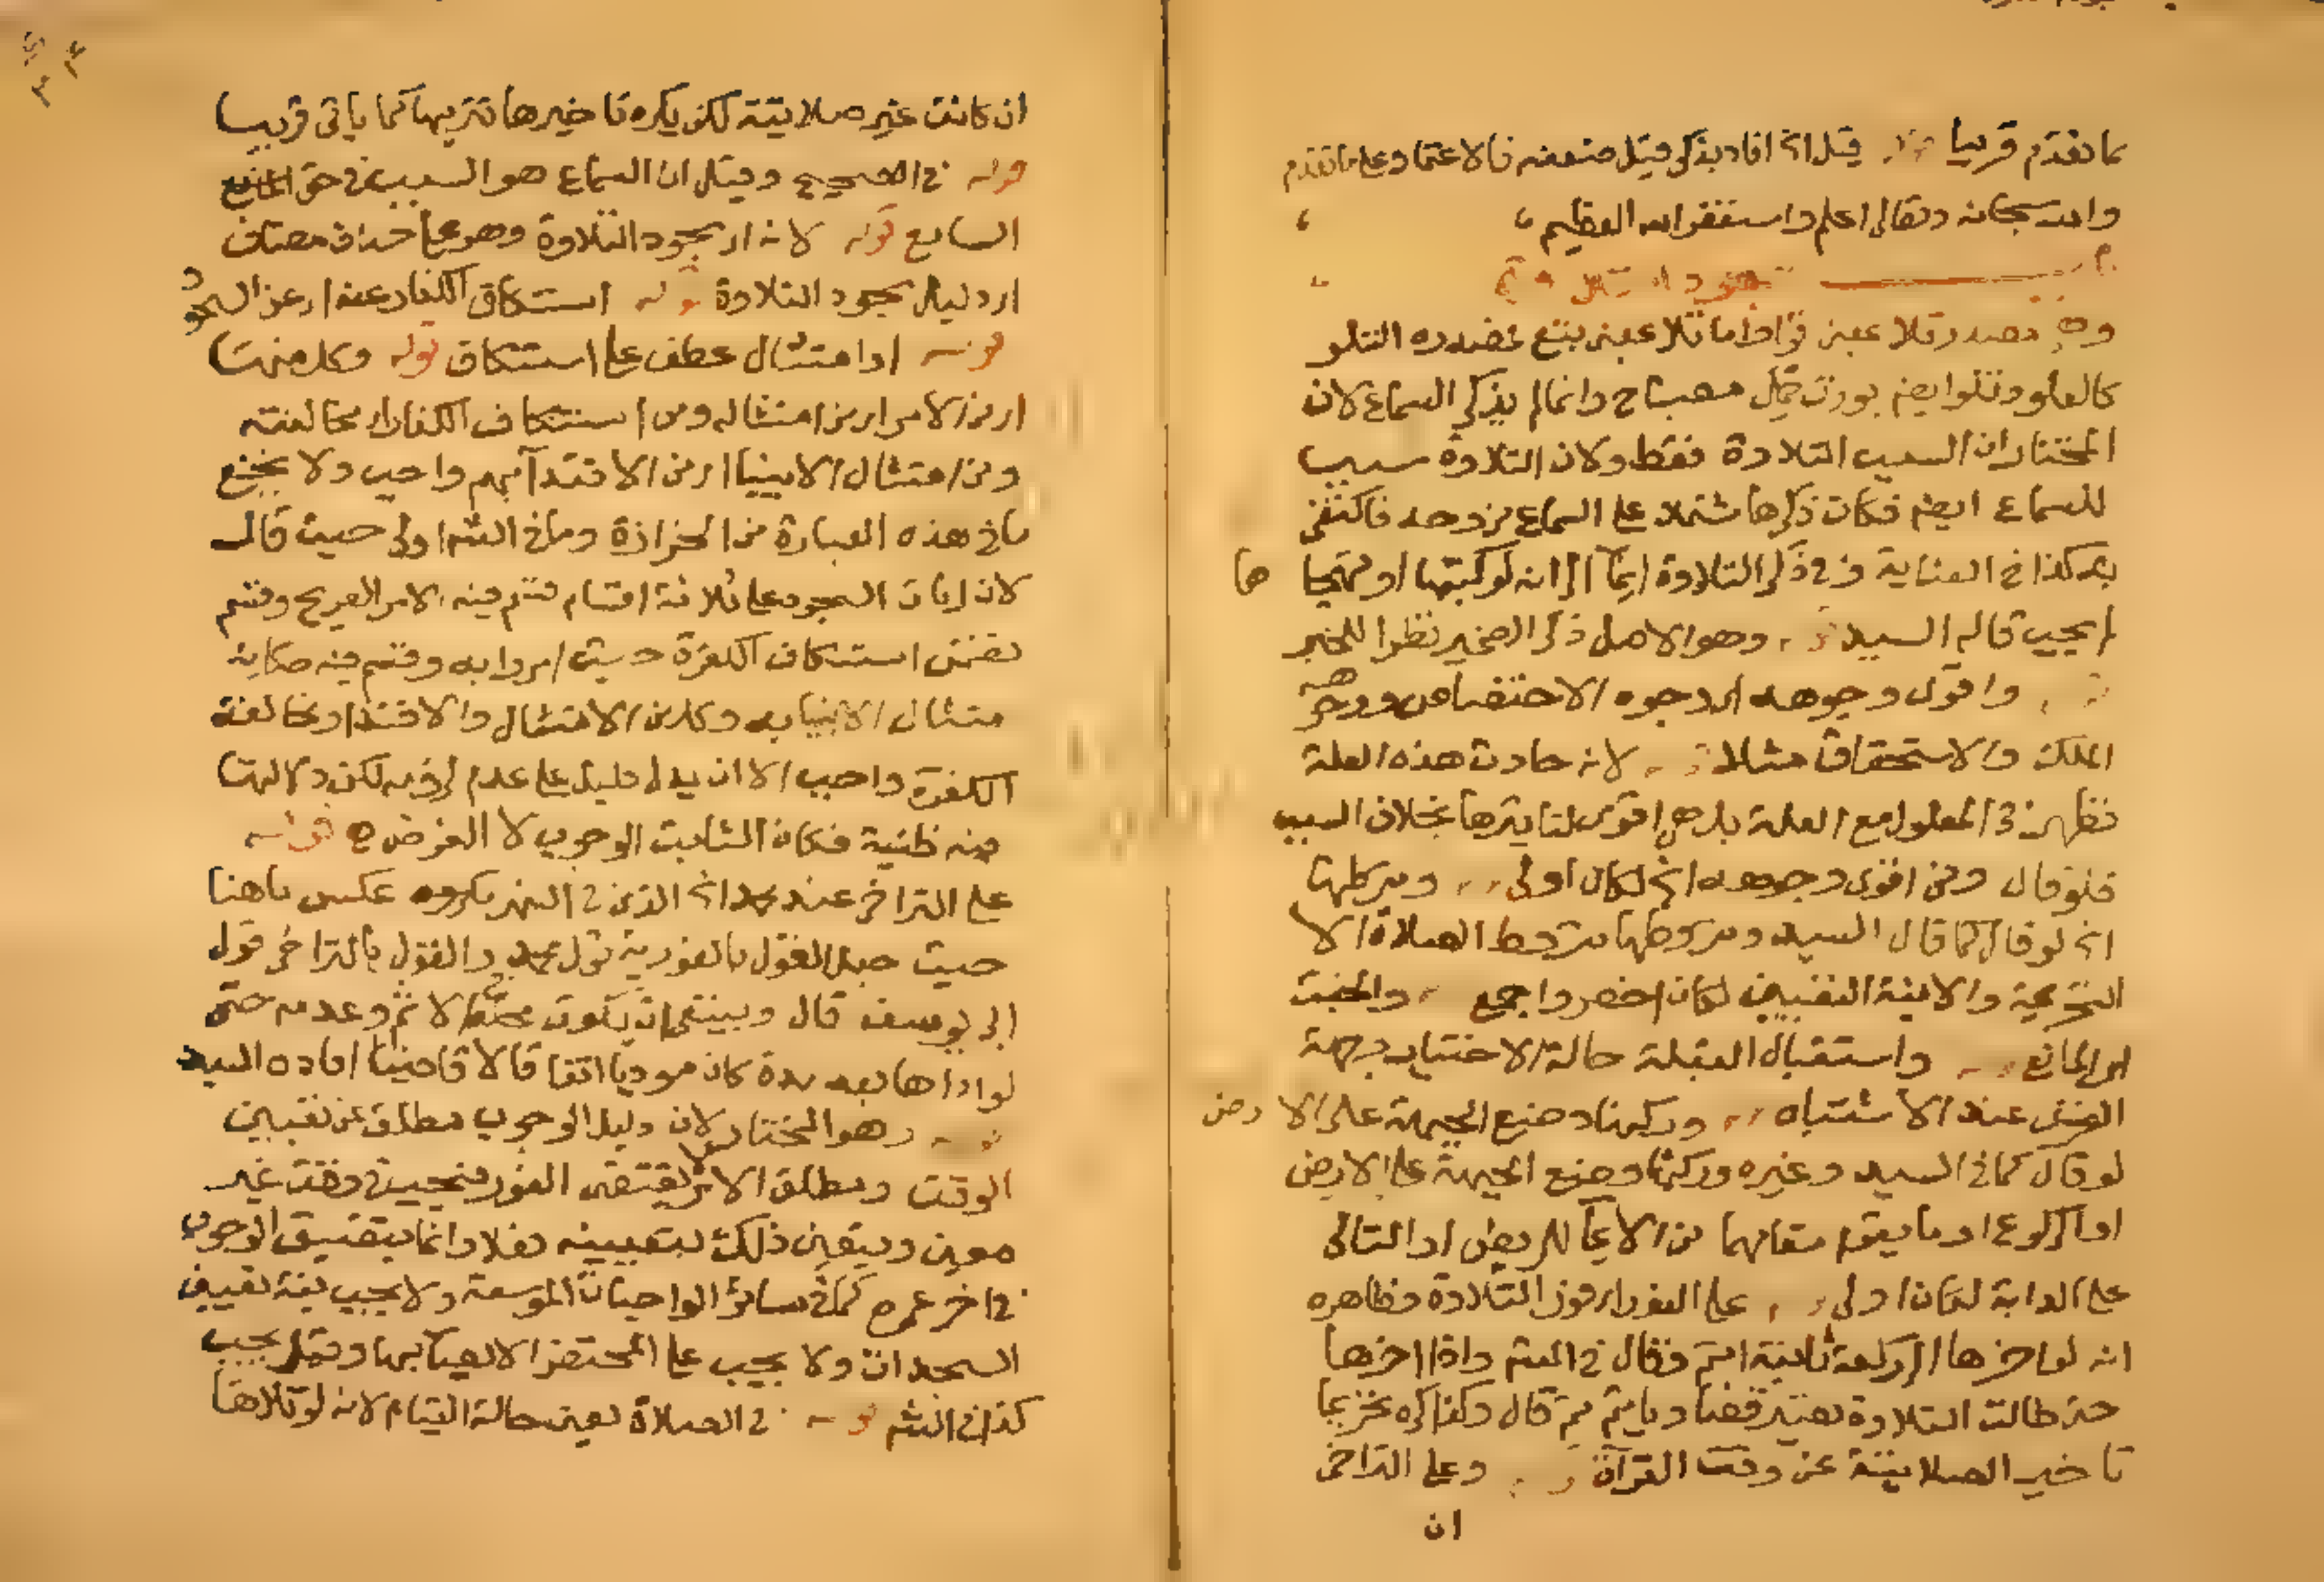 ما تقدم قريبا قوله قيل الخ افاد بذكر قيل ضعفه فالاعتماد على ما تقدم
والله سبحانه وتعالى اعلم واستغفر الله العظيم
باب سجود التلاوة
وهي مصدر تلا بمعنى قرا واما تلا بمعنى تبع فمصدره التلو
كالعلو وتلوا ايضا بوزن حمل مصباح وانما لم يذكر السماع لان
المختار ان السبب التلاوة فقط ولان التلاوة سبب
للسماع ايضا فكان ذكرها مشتملا على السماع من وجه فاكتفى
به كذا في العناية وفي ذكر التلاوة ايما الى انه لو كتبها او تهجاها
لم يجب قاله السيد وهو الاصل ذكر الضمير نظرا للخبر
واقوى وجوهه اي وجوه الاختصاص ووجوهه
الملك والاستحقاق مثلا لانه حادث هذه العلة
تظهر في المعلول مع العلة بل هي اقوى لتاثيرها بخلاف السبب
فلو قال ومن اقوى وجوهه الخ لكان اولى وشرطها
الخ لو قال كما قال السيد وشروطها شروط الصلاة الا
التحريمة والا نية التعيين لكان اخصر واجمع والخبث
اي المانع واستقبال القبلة حالة الاختيار وجهة
التحري عند الاشتباه وركنها وضع الجبهة على الارض
لو قال كما في السيد وغيره وركنها وضع الجبهة على الارض
او الركوع او ما يقوم مقامهما من الايما للمريض او التالي
على الدابة لكان اولى على الفور اي فور التلاوة وظاهره
انه لو اخرها الى ركعة ثانية اثم وقال في الشرح واذا اخرها
حتى طالت التلاوة تصير قضا وياثم ثم قال وكذا كره تحريما
تاخير الصلاتية عن وقت القراة وعلى التراخي
ان
ان كانت غير صلاتية لكن يكره تاخيرها تنزيها كما ياتي قريبا
قوله في الصحيح وقيل ان السماع هو السبب في حق
السامع قوله لانه اي سجود التلاوة وهو على حذف مضاف
اي دليل سجود التلاوة قوله استنكاف الكفار عنه اي عن السجود
قوله او امتثال عطف على استنكاف قوله وكل منها
اي من الامر اي من امتثاله ومن استنكاف الكفار اي مخالفته
ومن امتثال الانبيا اي من الاقتدا بهم واجب ولا يخفى
ما في هذه العبارة من الحزازة وما في الشرح اولى حيث قال
لان ايات السجود على ثلاثة اقسام قسم فيه الامر الصريح وقسم
تضمن استنكاف الكفرة حيث امروا به وقسم فيه حكاية
امتثال الانبيا به وكل من الامتثال والاقتدا ومخالفة
الكفرة واجب الا ان يدل دليل على عدم لزومه لكن دلالتها
فيه ظنية فكان الثابت الوجوب لا الفرض قوله
على التراخي عند محمد الخ الذي في النهر عكس ما هنا
حيث جعل القول بالفورية قول محمد والقول بالتراخي قول
ابي يوسف قال وينبغي ان يكون محل الاثم وعدمه حتى
لو اداها بعد مدة كان مؤديا اتفاقا لا قاضيا افاده السيد
قوله وهو المختار لان دليل الوجوب مطلق عن تعيين
الوقت ومطلق الامر لا يقتضي الفور فتجب في وقت غير
معين ويتعين ذلك بتعيينه فعلا وانما يتضيق الوجوب
في اخر عمره كما في سائر الواجبات الموسعة ولا يجب نية تعيين
السجدات ولا يجب على المحتضر الايصا بها وقيل يجب
كذا في الشرح قوله في الصلاة يعني حالة القيام لانه لو تلاها